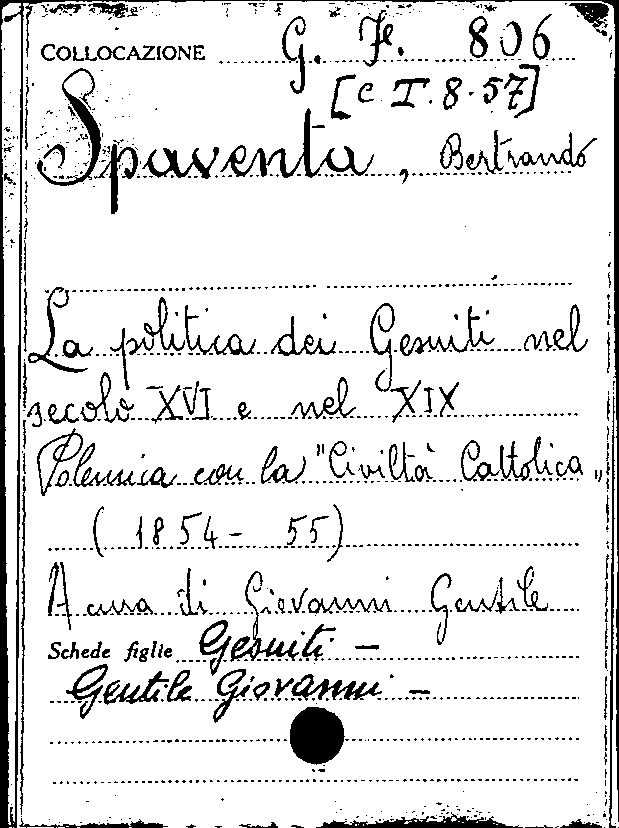 COLLOCAZIONE G. F. 806
[C T. 8. 57]
Spaventa, Bertrando
La politica dei Gesuiti nel
secolo XVI e nel XIX
Polemica con la "Civiltà Cattolica„
(1854-55)
A cura di Giovanni Gentile
Schede figlie Gesuiti —
Gentile Giovanni —